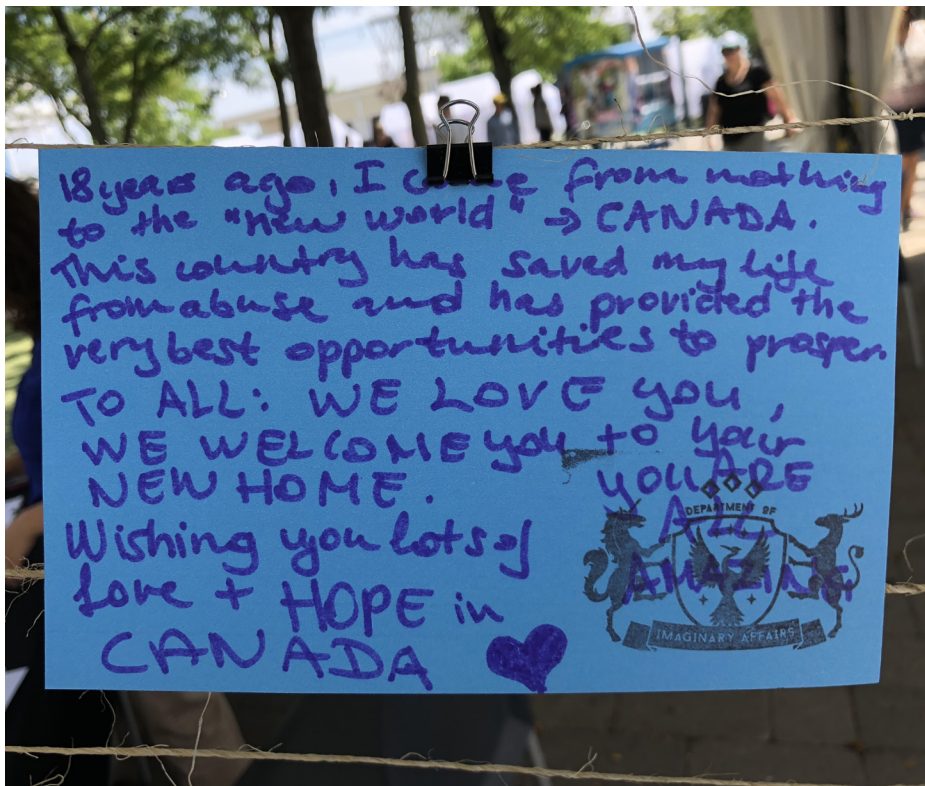 18 years ago, I came from nothing
to the "new world" → CANADA.
This country has saved my life
from abuse and has provided the
very best opportunities to prosper.
TO ALL: WE LOVE you,
WE WELCOME you to your
NEW HOME.
YOU ARE
ALL
AMAZING
Wishing you lots of
Love + HOPE in
CANADA ♥
DEPARTMENT OF
IMAGINARY AFFAIRS